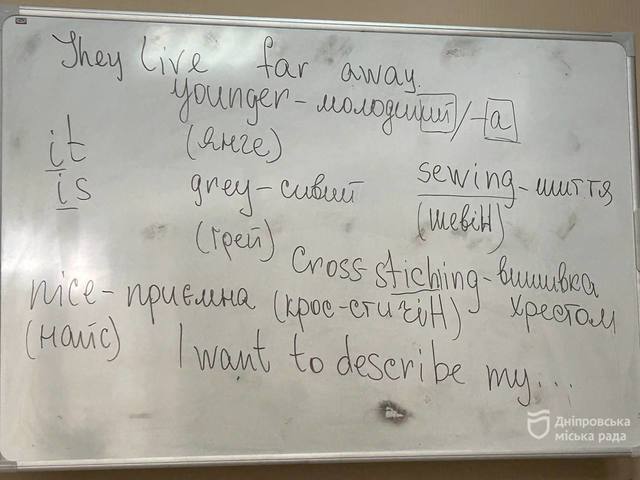 They live far away.
younger - молодший/-а
it
(янге)
is
grey - сивий
sewing - шиття
(шевіН)
(грей)
cross-stiching - вишивка хрестом
(крос-стичіН)
nice - приємна
(найс)
I want to describe my...
Дніпровська
міська рада